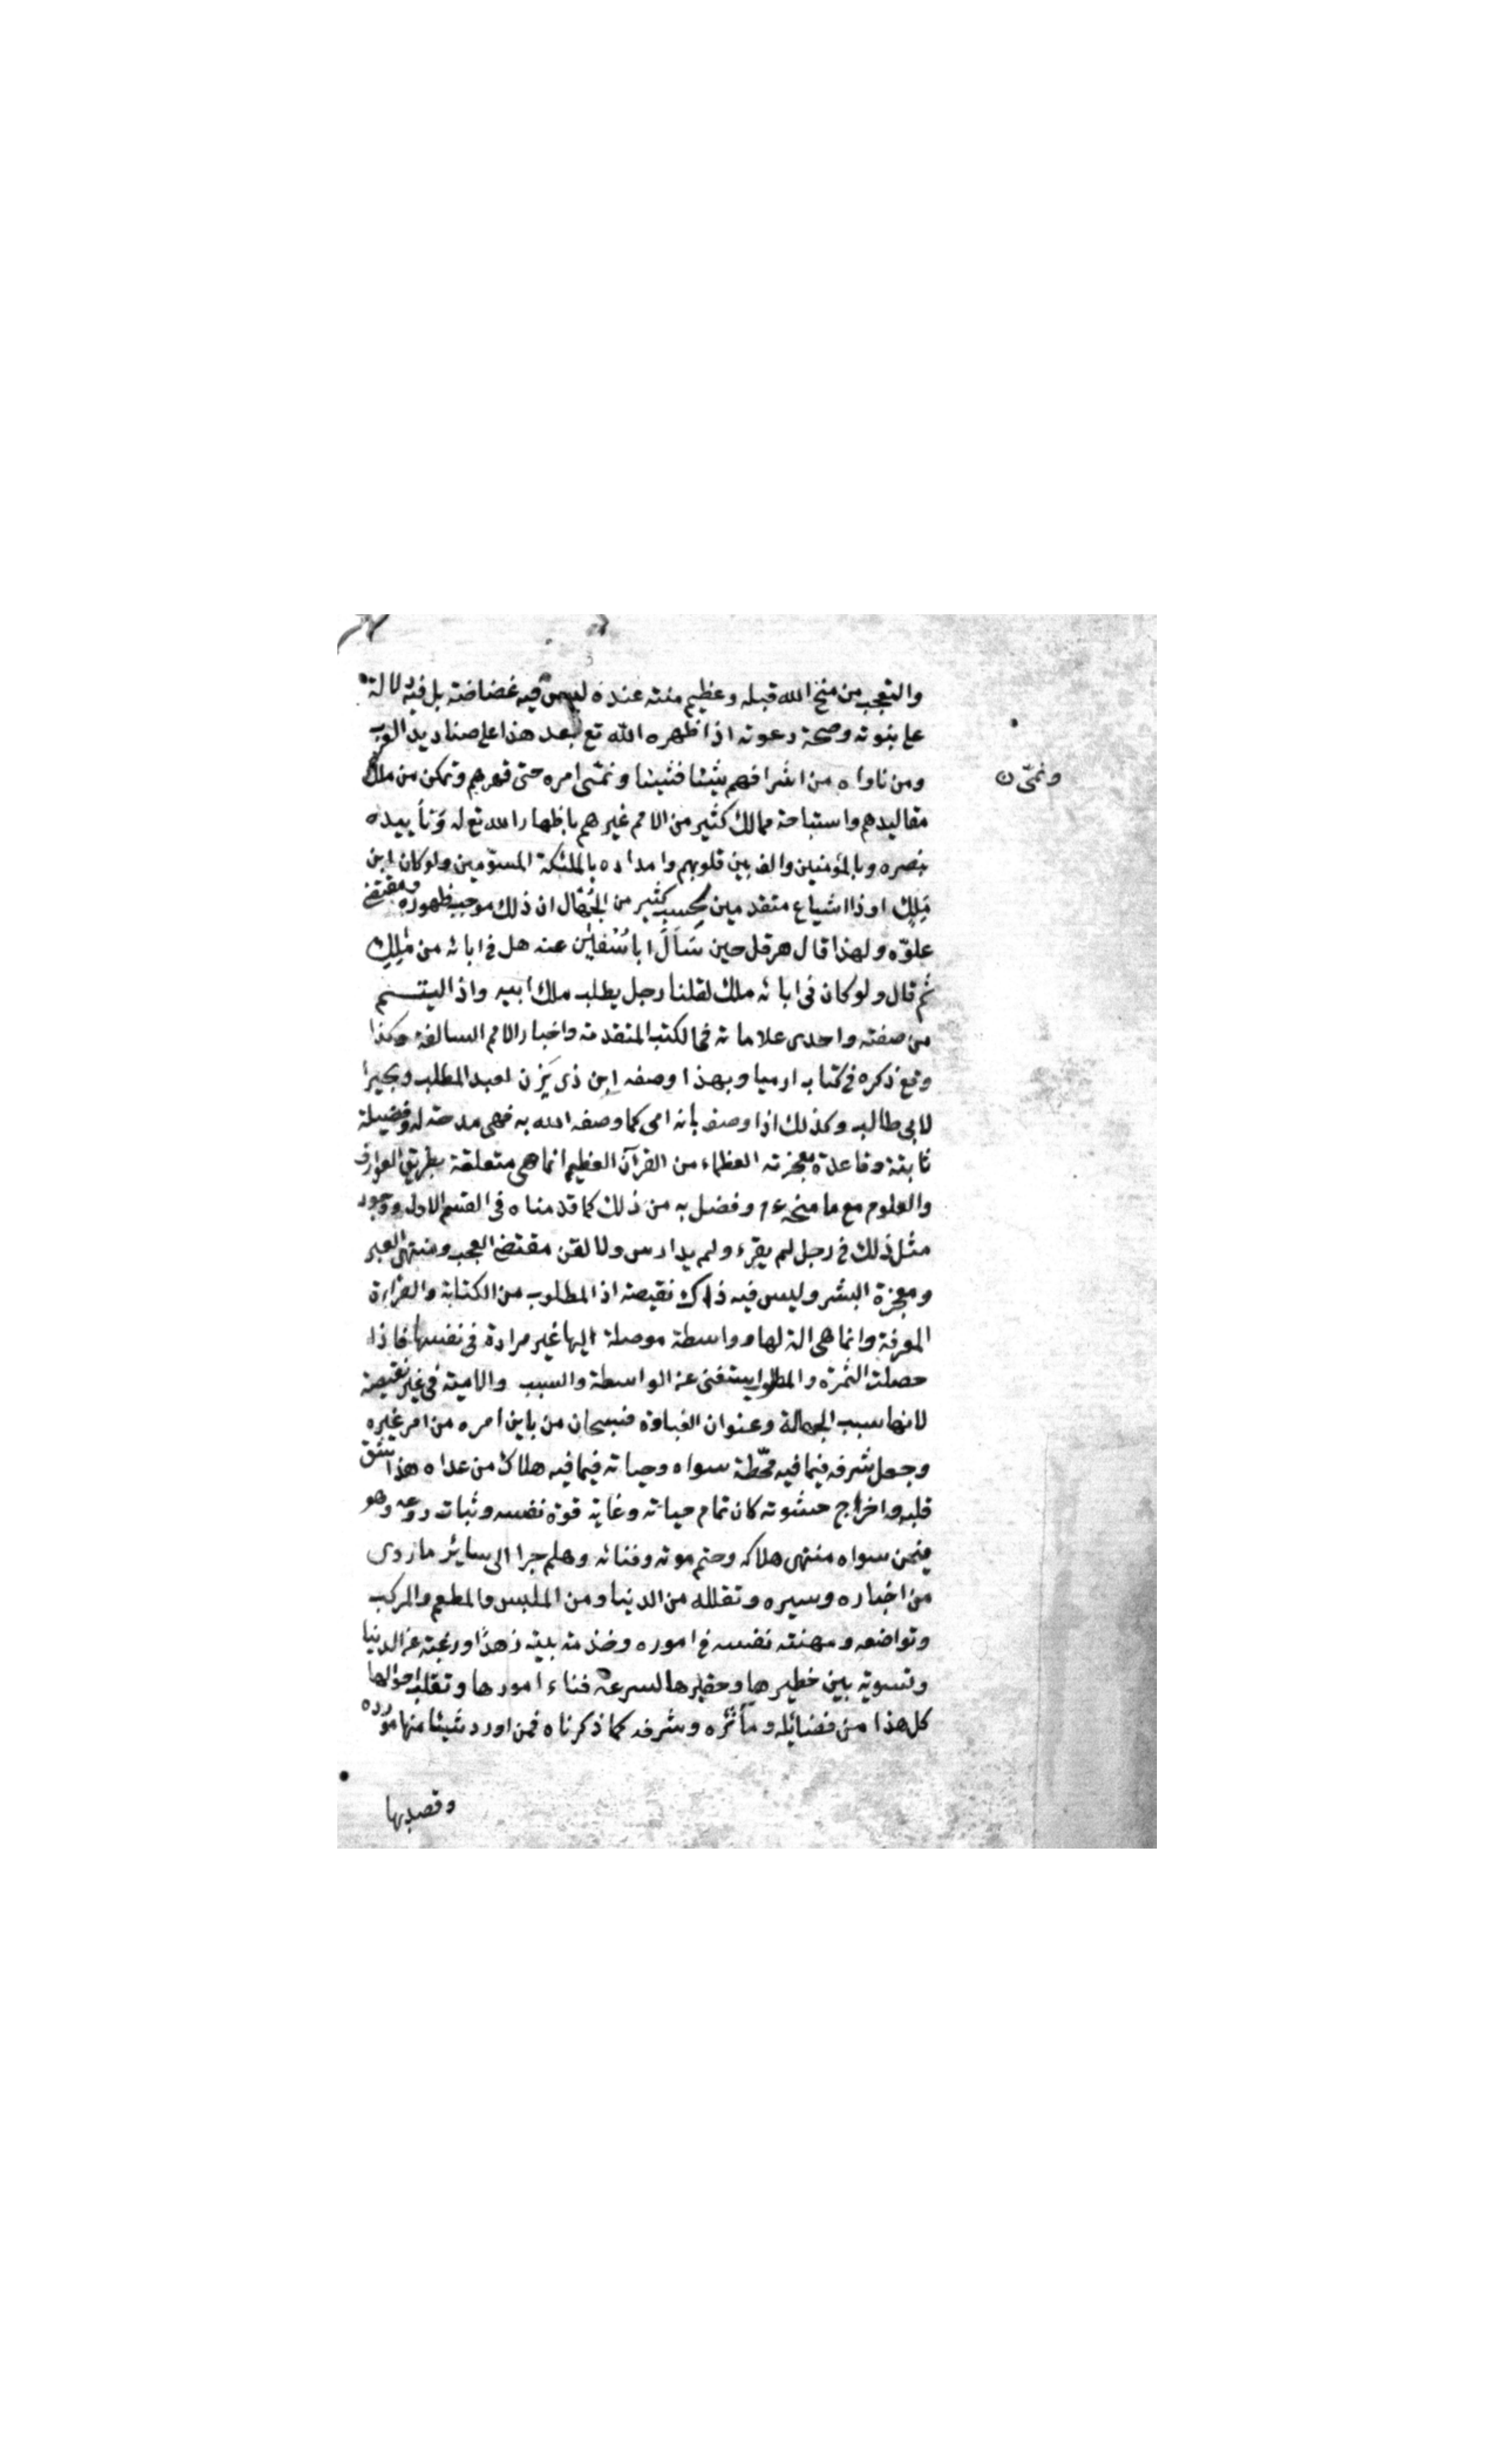 والتعجب من منح الله قبله وعظيم منته عنده ليس فيه غضاضة بل فيه دلالة
على نبوته وصحة دعوته اذ اظهره الله تع بعد هذا على صناديد العرب
ومن ناواه من اشرافهم شيئا فشيئا ونمّى امره حتى قهرهم وتمكن من ملك
ونمّى ن
مقاليدهم واستباحة ممالك كثير من الامم غيرهم باظهار الله تع له وتأييده
بنصره وبالمؤمنين والف بين قلوبهم وامداده بالملئكة المسوّمين ولو كان ابن
مَلِك او ذا اشياع متقدمين لحسب كثير من الجُهّال ان ذلك موجب ظهوره ومقتضى
علوّه ولهذا قال هرقل حين سَأَلَ اباسُفيٰن عنه هل فى ابائه من مَلِكِ
ثم قال ولو كان فى ابائه ملك لقلنا رجل يطلب ملك ابيه واذ اليتيم
من صفته واحدى علاماته فى الكتب المتقدمة واخبار الامم السالفة وكذا
وقع ذكره فى كتاب ارميا وبهذا وصفه ابن ذى يَزن لعبد المطلب وبحيرا
لابى طالب وكذلك اذا وصف بانه امى كما وصفه الله به فهى مدحة له وفضيلة
ثابتة وقاعدة معجزته العظماء من القرآن العظيم انما هى متعلقة بطريق المعارف
والعلوم مع ما منح ع م وفضل به من ذلك كما قدمناه فى القسم الاول ووجود
مثل ذلك فى رجل لم يقرء ولم يدارس ولا لقن مقتضى العجب ومنتهى العبر
ومعجزة البشر وليس فيه ذلك نقيصة اذ المطلوب من الكتابة والقراءة
المعرفة وانما هى الة لها وواسطة موصلة اليها غير مرادة فى نفسها فاذا
حصلت الثمرة والمطلوب يستغنى عن الواسطة والسبب والامية فى غيره نقيصة
لانها سبب الجهالة وعنوان الغباوة فسبحان من باين امره من امر غيره
وجعل شرفه فيما فيه محّطة سواه وحياته فيما فيه هلاك من عداه هذا شق
قلبه واخراج حشوته كان تمام حياته وغاية قوة نفسه وثبات روعه وهو
فيمن سواه منتهى هلاكه وحتم موته وفنائه وهلم جرا الى سائر ما روى
من اخباره وسيره وتقلله من الدنيا ومن الملبس والمطعم والمركب
وتواضعه ومهنته نفسه فى اموره وخذمة بيته زهدًا ورغبة عن الدنيا
وتسوية بين خطيرها وحقيرها لسرعة فناء امورها وتقلب احوالها
كل هذا من فضائله ومأثره وشرفه كما ذكرناه فمن اورد شيئا منها مورده
وقصد بها